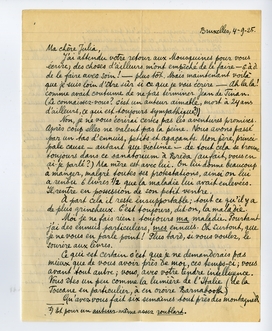 Bruxelles, 4-9-25.
Ma chère Julia,
J'attendu votre retour aux Mousquines pour vous
écrire; des choses d'ailleurs m'ont empêché de le faire – c'-à-d.
de le faire avec soin! – plus tôt. Mais maintenant voilà
que je suis loin d'être sûr si ce que je vous écris – Ah là là!
comme avait coutume de ne pas terminer Jean de Tinan.
(Le connaissez-vous? c'est un auteur aimable, mort à 24 ans
d'ailleurs, ce qui est toujours sympathique)
Non, je ne vous écrirai certes pas les aventures promises.
Après coup elles ne valent pas la peine. Nous avons passé
par un tas d'ennuis, petits et Mon père, princi-
pale cause – autant que victime – de tout cela se trouve
toujours dans ce sanatorium à Bréda, (surfait, vous en
ai-je parlé?) Ma mère est avec lui. On lui donne beaucoup
à manger, malgré toutes ses protestations, ainsi on lui
a rendu 2 livres ½ que la maladie lui avait enlevées.
Il rentre en possession de son petit ventre.
A part cela il reste insupportable; donc ce qu'il y a
de plus C'est toujours, dit-on, la maladie.
Moi je ne fais rien: toujours ma maladie. Pourtant
j'ai des ennuis particuliers, mes ennuis. Oh surtout, que
je ne vous en parle point! Plus tard, si vous voulez, le
sourire aux lèvres.
Ce qui est certain c'est que je ne demanderais pas
mieux que de vous avoir près de moi, ces temps-ci; vous
avant tout autre; vous, avec votre tendre intelligence.
Vous êtes un peu comme la lumière de l'Italie. (de la
Toscane en particulier, à en croire Barnabooth)
Qu'avez-vous fait six semaines tout près des montagnes